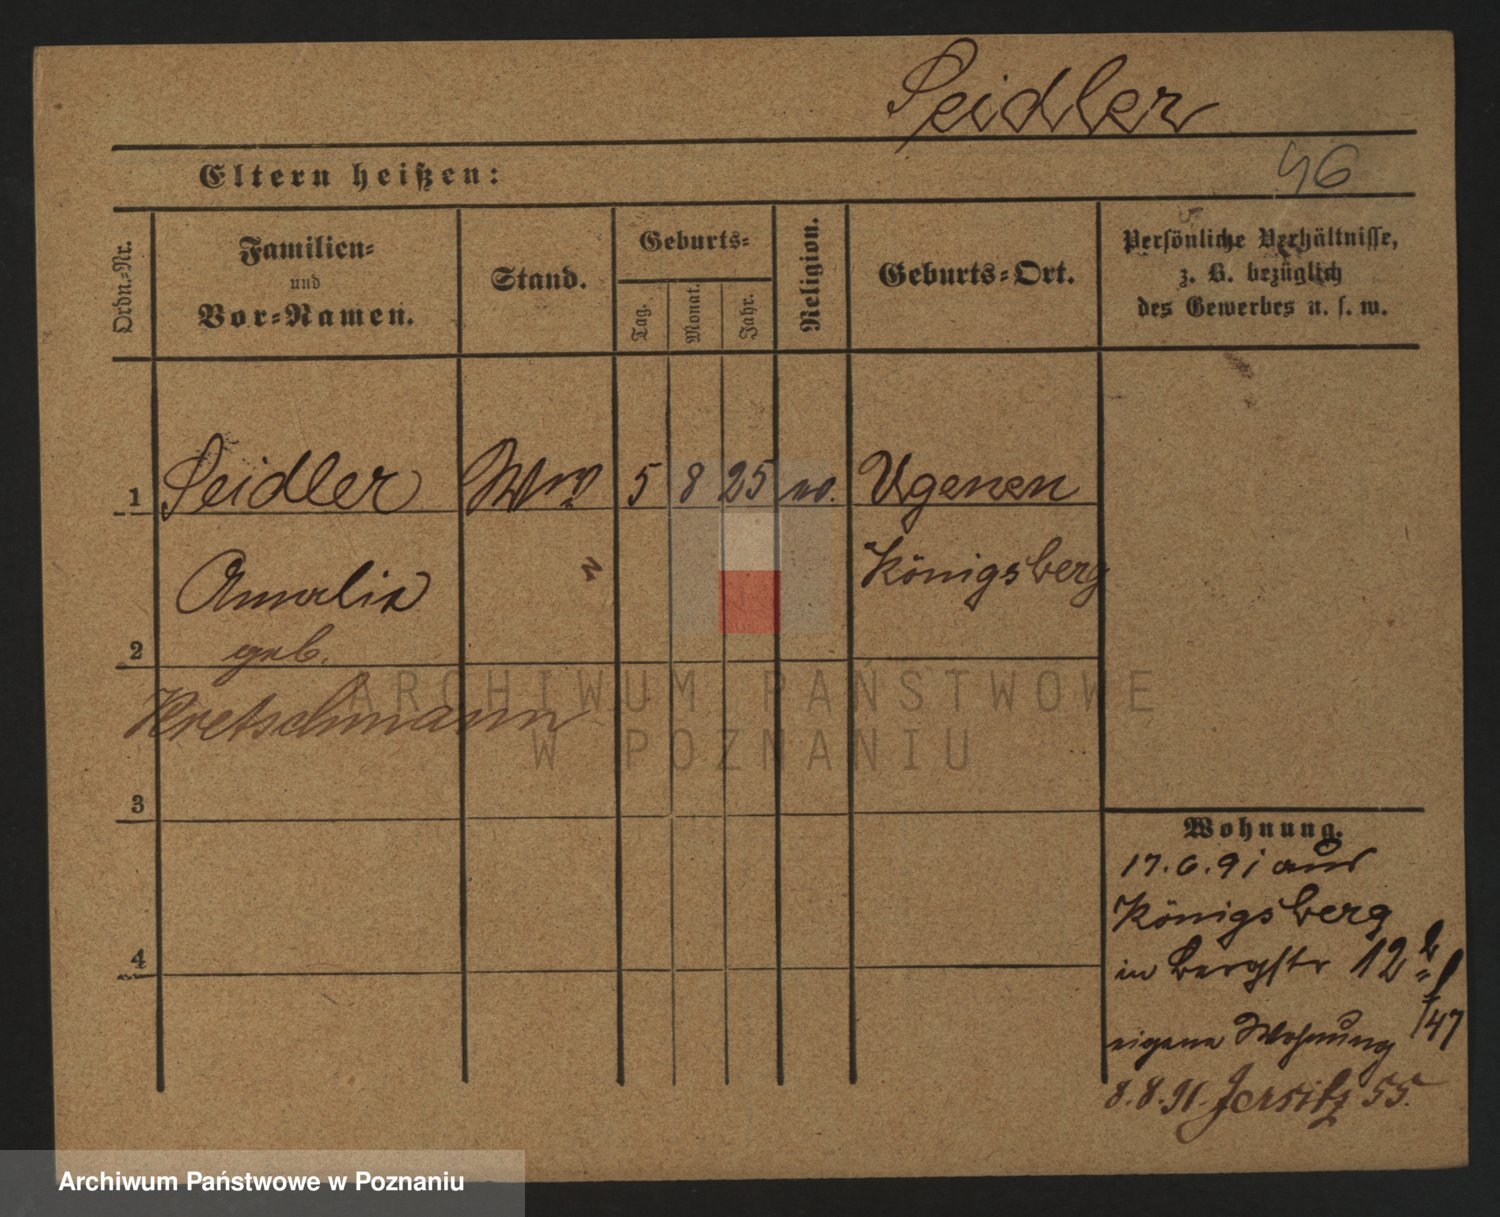 Seidler
Eltern heißen:
46
Ordn.-Nr.
Familien-
und
Vor-Namen.
Stand.
Geburts-
Tag.
Monat.
Jahr.
Religion.
Geburts-Ort.
Persönliche Verhältnisse,
z. B. bezüglich
des Gewerbes u. s. w.
1 Seidler Ww 5 8 25 ev. Ugenen
Amalie Königsberg
2 geb.
Kretschmann
ARCHIWUM PAŃSTWOWE
W POZNANIU
3
4
Wohnung.
17.6.91 aus
Königsberg
in Bergstr 12
eigene Wohnung 47
8.8.91. Jersitz 55.
Archiwum Państwowe w Poznaniu